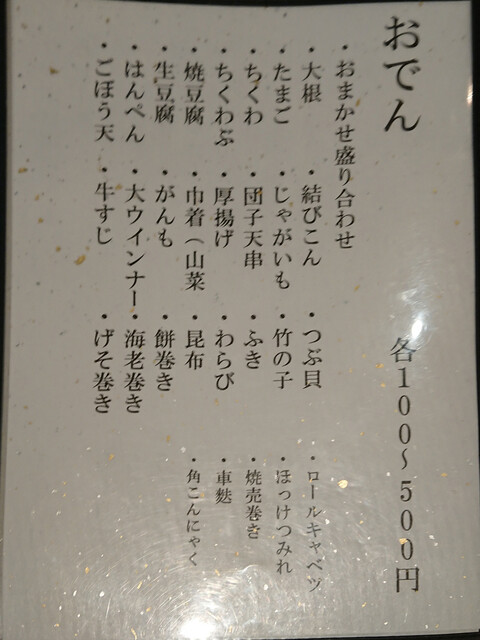 おでん 各100~500円
・おまかせ盛り合わせ
・大根 ・結びこん ・つぶ貝 ・ロールキャベツ
・たまご ・じゃがいも ・竹の子 ・ほっけつみれ
・ちくわ ・団子天串 ・ふき ・焼売巻き
・ちくわぶ ・厚揚げ ・わらび ・車麩
・焼豆腐 ・巾着(山菜 ・昆布 ・角こんにゃく
・生豆腐 ・がんも ・餅巻き
・はんぺん ・大ウインナー ・海老巻き
・ごぼう天 ・牛すじ ・げそ巻き